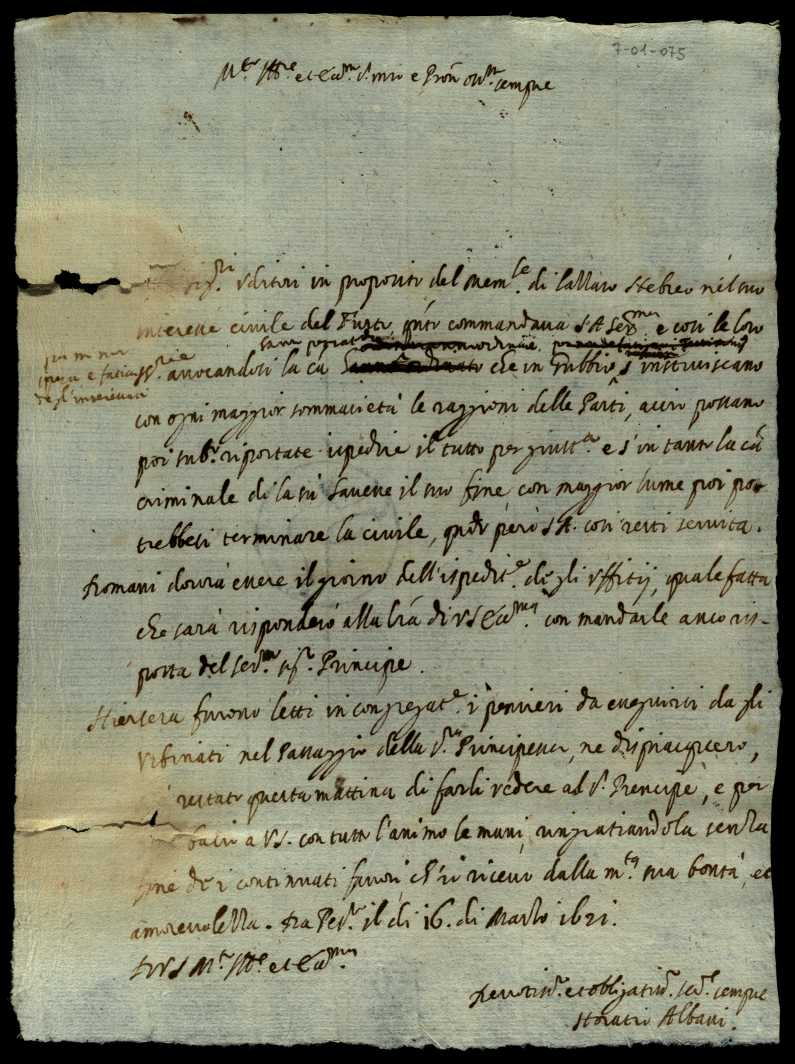 7-01-075
M.to Ill.re et Ecc.mo S.r mio e Pron oss.mo sempre
sig.ri Uditori in proposito del Mem.le di Lazzaro Hebreo nel suo
interesse civile del Furto, q.nto commandava S A Ser.ma e così le loro
fatiche
per m nor
spesa e fatica
degl'interessati
SS.rie avvocandosi la cã che in Gubbio s'instruiscano
con ogni maggior sommarietà le raggioni delle Parti, acciò possano
poi sub.o riportate ispedire il tutto per giust.a e s'in tanto la cã
criminale di la sù havesse il suo fine, con maggior lume poi po
trebbesi terminare la civile, q.do però S A. così resti servita.
Domani dovrà essere il giorno dell'ispedit.e degli Uffitij, quale fatta
che sarà risponderò alla lrã di VS Ecc.ma con mandarle anco ris-
posta del Ser.mo Sig.r Principe.
Hiersera furono letti in congregat.e i pensieri da eseguirsi dagli
Urbinati nel Passaggio della S.ra Principessa, ne dispiacquero,
restato questa mattina di farli vedere al S.r Prencipe, e per
bacio a VS. con tutto l'animo le mani, ringratiandola senza
fine de i continuati favori, ch'io ricevo dalla m.ta sua bontà, et
amorevolezza. Da Pes.o il dì 16. di Marzo 1621.
Di VS M.to Ill.re et Ecc.ma
Devotiss.o et obligatiss.o ser.e sempre
Horatio Albani.